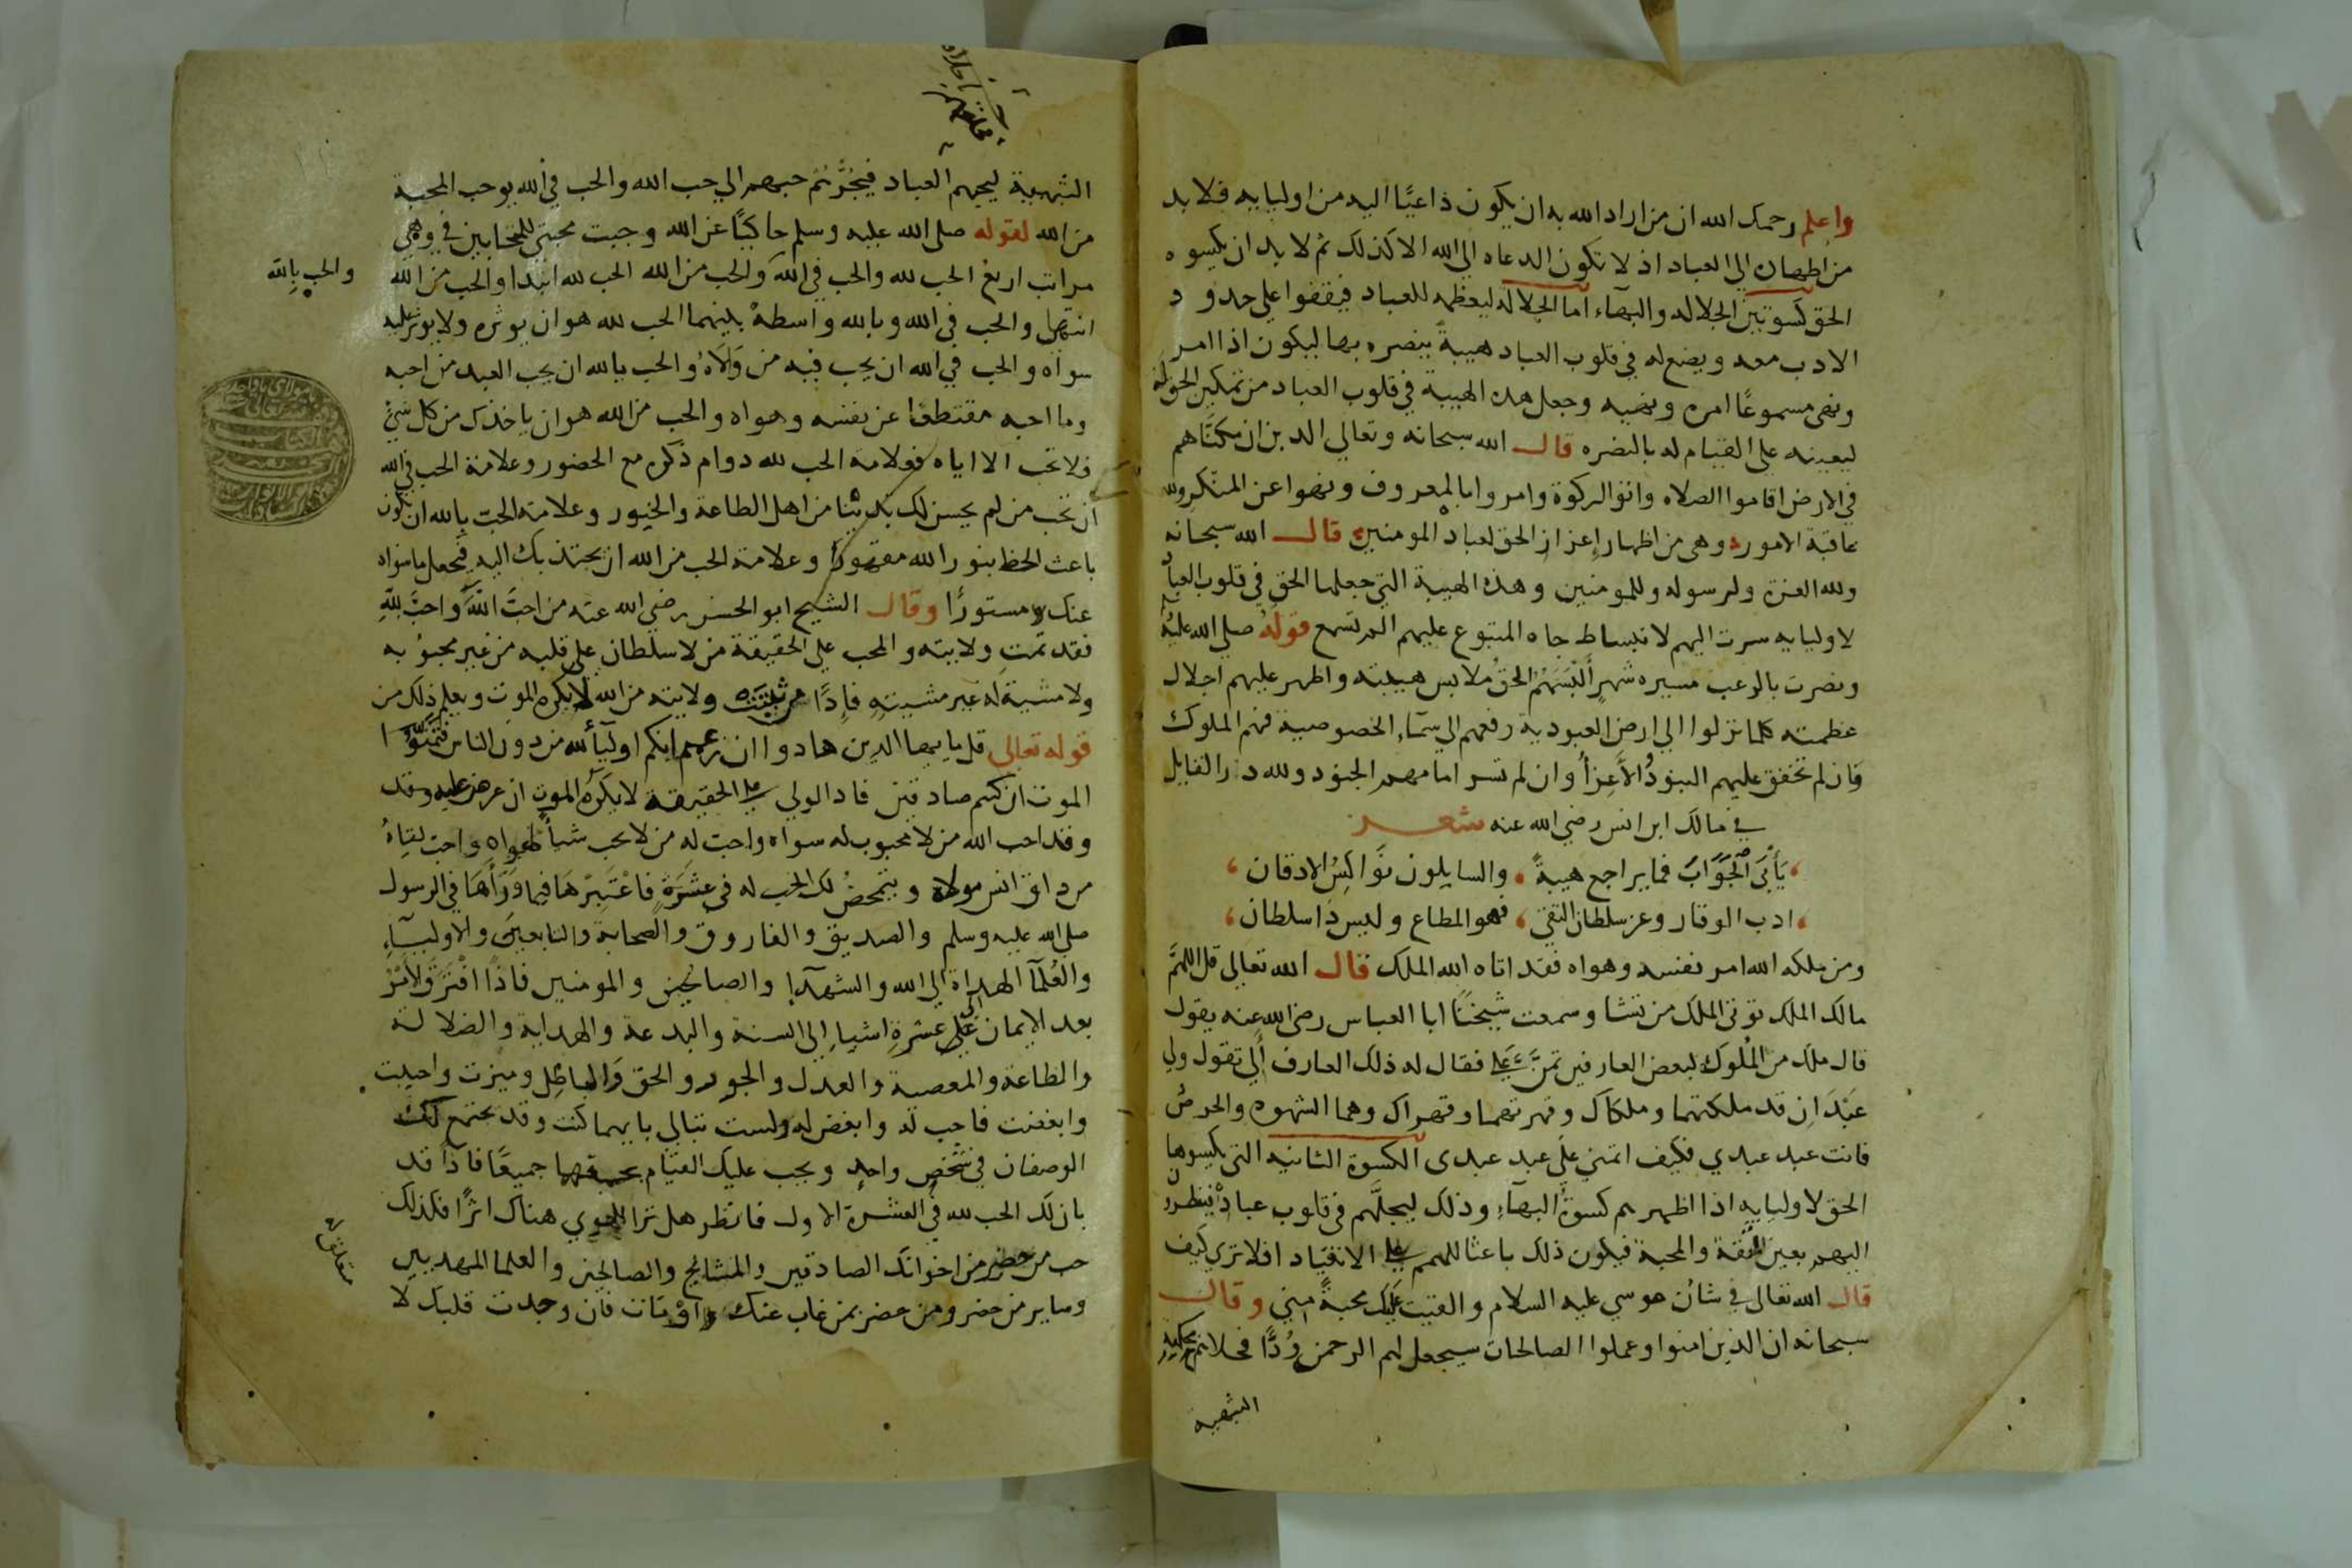 واعلم رحمك الله ان من اراد الله به ان يكون داعيًا اليه من اوليايه فلا بد
من اظهاره الي العباد اذ لا تكون الدعاه الي الله الا كذلك ثم لا بد ان يكسوه
الحق كسوتين الجلاله والبهاء اما الجلاله ليعظمه للعباد فيقفوا علي حدود
الادب معه ويضع له في قلوب العباد هيبةً ينصره بها ليكون اذا امر
ونهي مسموعًا امره ونهيه وجعل هذه الهيبة في قلوب العباد من تمكين الحق له
ليعينه علي القيام له بالنصره قال الله سبحانه وتعالي الذين ان مكنّاهم
في الارض اقاموا الصلاه واتوا الزكوة وامروا بالمعروف ونهوا عن المنكر ولله
عاقبة الامور وهي من اظهار اعزاز الحق لعباده المومنين قال الله سبحانه
ولله العزة ولرسوله وللمومنين وهذه الهيبة التي جعلها الحق في قلوب العباد
لاوليايه سرت اليهم لانبساط جاه المتبوع عليهم الم تسمع قوله صلي الله عليه
ونصرت بالرعب مسيره شهرٍ ألبسهم الحق ملابس هيبته واظهر عليهم اجلال
عظمته كلما نزلوا الي ارض العبودية رفعهم الي سماء الخصوصية فهم الملوك
فان لم تخفق عليهم البنود الأعزاء وان لم تسر امامهم الجنود ولله در القايل
في مالك ابن انس رضي الله عنه شعر
يأبى الجواب فما يراجع هيبةً والسايلون نواكس الادقان
ادب الوقار وعز سلطان التقي فهو المطاع وليس ذا سلطان
ومن ملكه الله امر نفسه وهواه فقد اتاه الله الملك قال الله تعالي قل اللهمَّ
مالك الملك توتي الملك من تشا وسمعت شيخنا ابا العباس رضي الله عنه يقول
قال ملك من الملوك لبعض العارفين تمنَّ علي فقال له ذلك العارف ألي تقول ولي
عبدان قد ملكتهما وملكاك وقهرتهما وقهراك وهما الشهوه والحرص
فانت عبد عبدي فكيف اتمني علي عبد عبدي الكسوة الثانيه التي يكسوها
الحق لاوليايه اذا اظهرهم كسوة البهاء وذلك ليجلَّهم في قلوب عباده فينظرون
اليهم بعين المقة والمحبة فيكون ذلك باعثا للهمم علي الانقياد افلا تري كيف
قال الله تعالي في شان موسي عليه السلام والقيت عليك محبةً مني وقال
سبحانه ان الذين امنوا وعملوا الصالحات سيجعل لهم الرحمن وُدًّا فحلاهم بحكمته
الشهية
الشهية ليحبهم العباد فيجرّهم حبهم الي حب الله والحب في الله يوجب المحبة
من الله لقوله صلي الله عليه وسلم حاكيًا عن الله وجبت محبتي للمتحابين في وهي
مراتب اربع الحب لله والحب في الله والحب من الله الحب لله ابتدا والحب من الله
والحب بالله
انتها والحب في الله وبالله واسطة بينهما الحب لله هو ان يوثره ولا يوثر عليه
سواه والحب في الله ان يحب فيه من والاه والحب بالله ان يحب العبد من احبه
وما احبه مقتطفا عن نفسه وهواه والحب من الله هو ان ياخذك من كل شيء
فلا تحب الا اياه وعلامة الحب لله دوام ذكره مع الحضور وعلامة الحب في الله
أن تحب من لم يحسن لك بدنيا من اهل الطاعة والخيور وعلامة الحب بالله ان تكون
باعث الحظ بنور الله مقهورًا وعلامة الحب من الله ان يجتذبك اليه فيجعل ما سواه
عنك مستورًا وقال الشيخ ابو الحسن رضي الله عنه من احبَّ اللهَ واحبَّ للهِ
فقد تمت ولايته والمحب علي الحقيقة من لا سلطان علي قلبه من غير محبوبه
ولا مشية له غير مشيته فإذًا من ثبتت ولايته من الله لا يكره الموت ويعلم ذلك من
قوله تعالي قل يا يها الذين هادوا ان زعمتم انكم اولياء لله من دون الناس فتمنوا
الموت ان كنتم صادقين فاذ الولي علي الحقيقة لا يكره الموت ان عرض عليه وقد
وقد احب الله من لا محبوب له سواه واحب له من لا يحب شيأ لهواه واحب لقاءه
من ذاق انس مولاه ويتمحض لك الحب له في عشرةٍ فاعتبرها فيما وراها في الرسول
صلي الله عليه وسلم والصديق والفاروق والصحابة والتابعين والاولياء
والعلما الهداة الي الله والشهدا والصالحين والمومنين فاذا افترق الامر
بعد الايمان علي عشرة اشياء الي السنة والبدعة والهداية والضلالة
والطاعة والمعصية والعدل والجور والحق والباطل وميزت واحببت
وابغضت فاحب له وابغض له ولست تبالي بايهما كنت وقد يجتمع لك
الوصفان في شخص واحد ويجب عليك القيام بحقهما جميعًا فاذا قد
بان لك الحب لله في العشرة الاول فانظر هل ترا للهوي هناك اثرًا فكذلك
حب من حضر من اخوانك الصادقين والمشائخ والصالحين والعلما المهديين
وساير من حضر ومن حضر بمن غاب عنك او مات فان وجدت قلبك لا
متعلق له